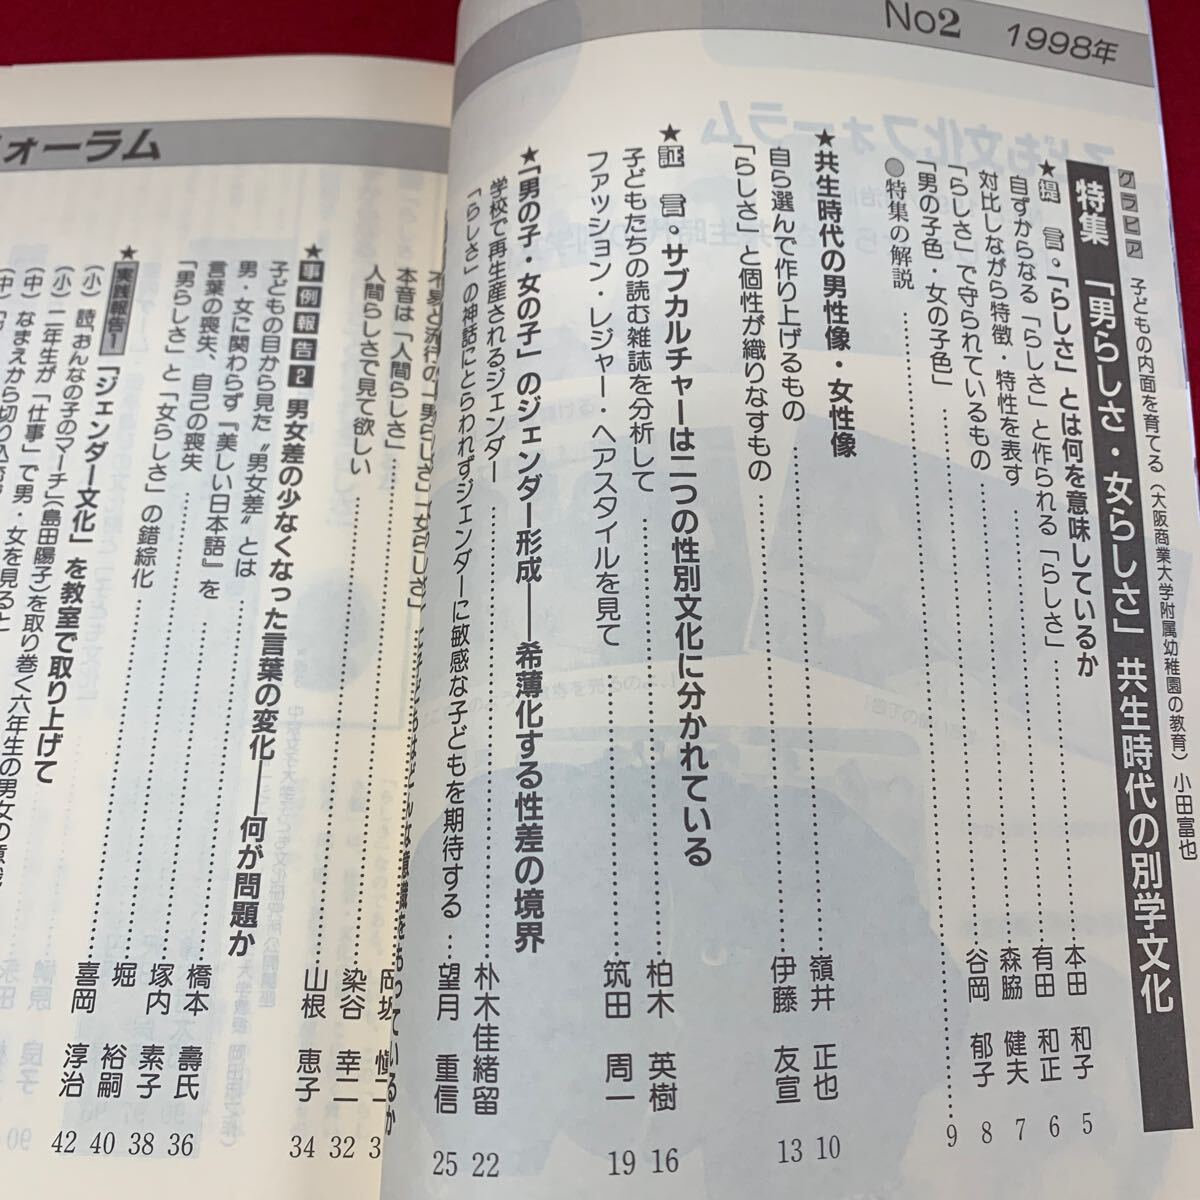 No2　1998年
グラビア 子どもの内面を育てる（大阪商業大学附属幼稚園の教育）小田富也
特集 「男らしさ・女らしさ」共生時代の別学文化
★提　言・「らしさ」とは何を意味しているか
自ずからなる「らしさ」と作られる「らしさ」……本田　和子　5
対比しながら特徴・特性を表す……有田　和正　6
「らしさ」で守られているもの……森脇　健夫　7
「男の子色・女の子色」……谷岡　郁子　8
●特集の解説……9
★共生時代の男性像・女性像
自ら選んで作り上げるもの……嶺井　正也　10
「らしさ」と個性が織りなすもの……伊藤　友宣　13
★証　言・サブカルチャーは二つの性別文化に分かれている
子どもたちの読む雑誌を分析して……柏木　英樹　16
ファッション・レジャー・ヘアスタイルを見て……筑田　周一　19
★「男の子・女の子」のジェンダー形成――希薄化する性差の境界
学校で再生産されるジェンダー……朴木佳緒留　22
「らしさ」の神話にとらわれずジェンダーに敏感な子どもを期待する…望月　重信　25
ォーラム
意識をもっているか
不易と流行の「男らしさ」「女らしさ」……慎二　3
本音は「人間らしさ」……染谷　幸二　32
人間らしさで見て欲しい……山根　恵子　34
★事例報告2 男女差の少なくなった言葉の変化――何が問題か
子どもの目から見た〝男女差〟とは……橋本　壽氏　36
男・女に関わらず「美しい日本語」を……塚内　素子　38
言葉の喪失、自己の喪失……堀　裕嗣　40
「男らしさ」と「女らしさ」の錯綜化……喜岡　淳治　42
★実践報告1 「ジェンダー文化」を教室で取り上げて
（小）詩「おんなの子のマーチ」（島田陽子）を取り巻く六年生の男女の意識
（小）二年生が「仕事」で男・女を見ると
（中）なまえから切り込
（中）